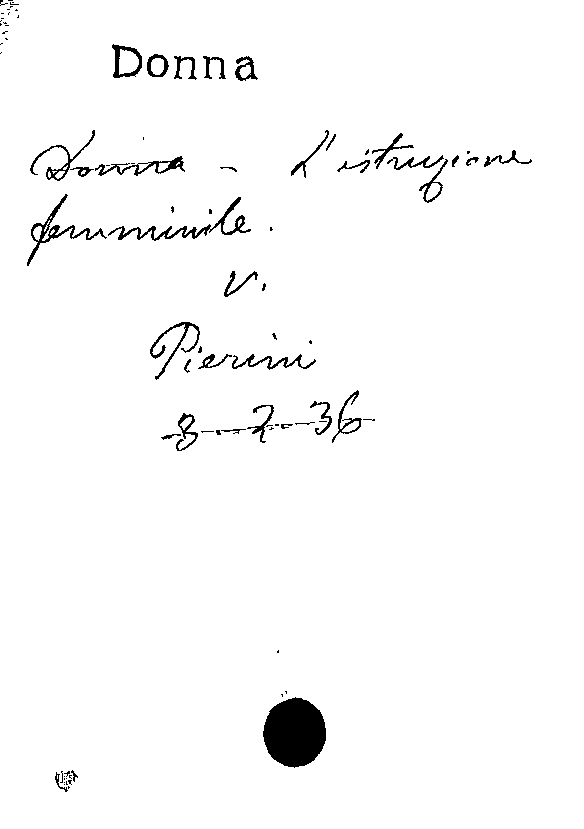 Donna
Donna - L'istruzione
femminile.
v.
Pierini
8.2.36